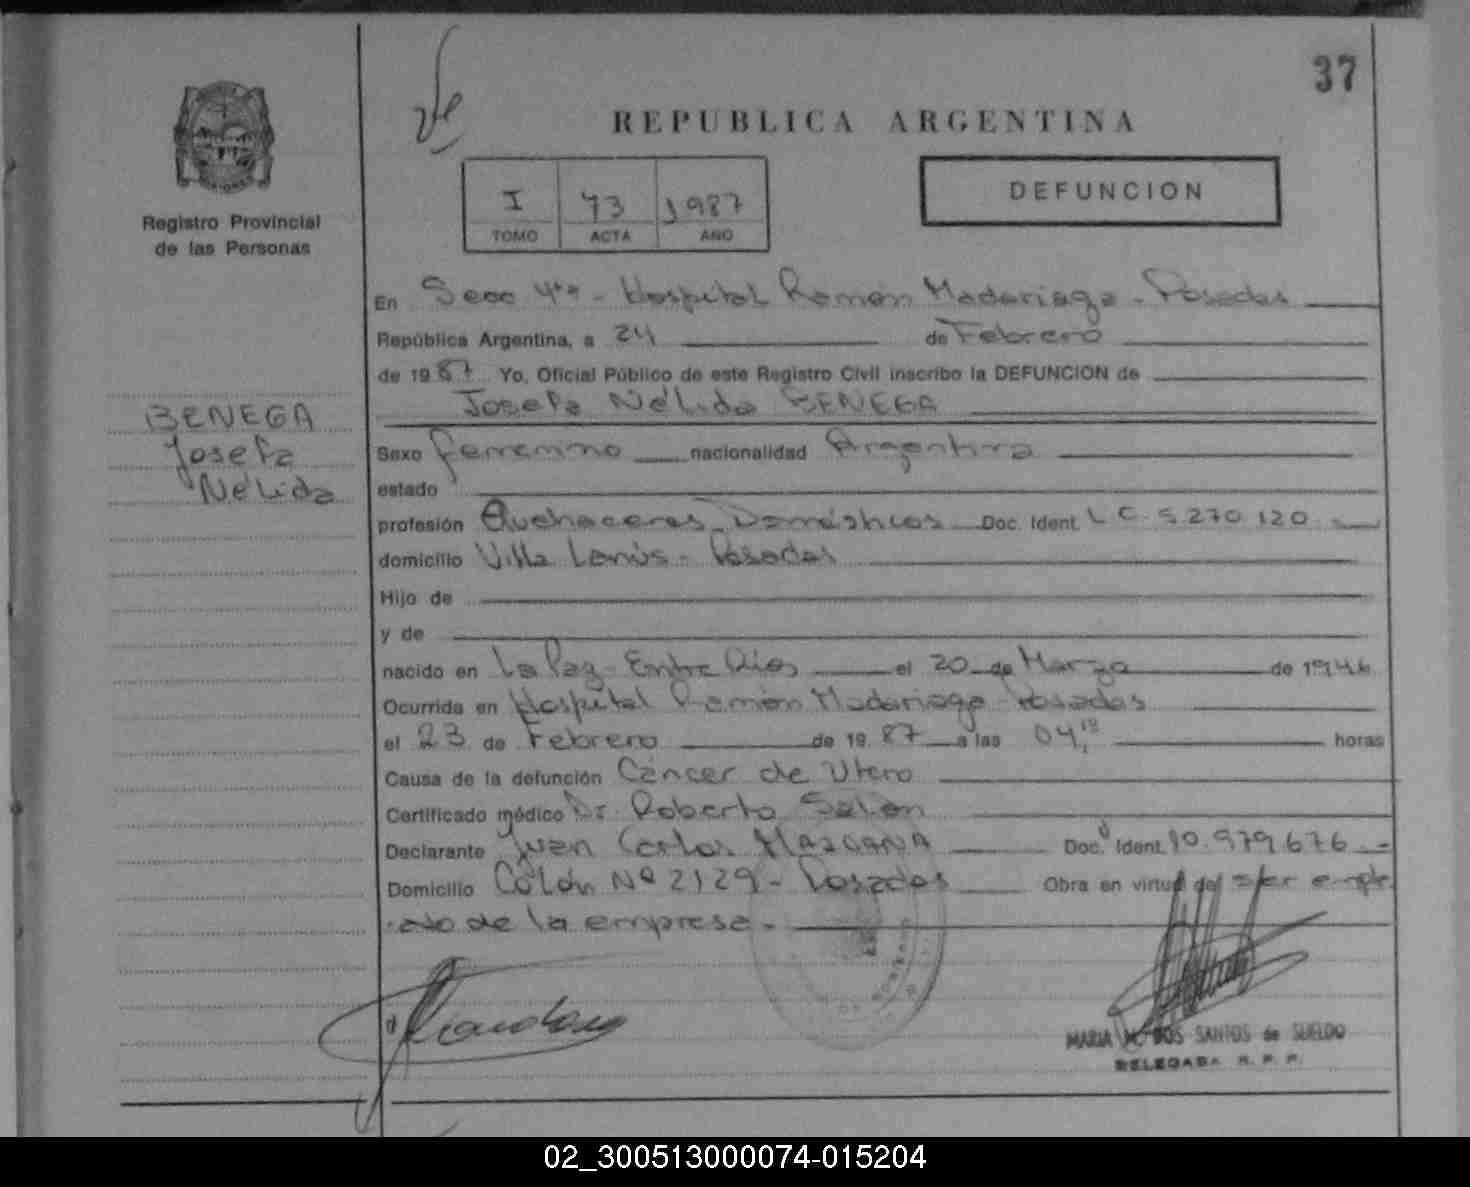 37
REPUBLICA ARGENTINA
I 73 1987
TOMO ACTA AÑO
DEFUNCION
Registro Provincial
de las Personas
En Secc 4ta - Hospital Ramón Madariaga - Posadas
República Argentina, a 24 de Febrero
de 1987 Yo, Oficial Público de este Registro Civil inscribo la DEFUNCION de
Josefa Nélida BENEGA
BENEGA
Josefa
Nélida
Sexo femenino nacionalidad Argentina
estado
profesión Quehaceres Domésticos Doc. Ident. L C. 5.270.120
domicilio Villa Lanús - Posadas
Hijo de
y de
nacido en La Paz - Entre Ríos el 20 de Marzo de 1946
Ocurrida en Hospital Ramón Madariaga - Posadas
el 23 de Febrero de 1987 a las 04, horas
Causa de la defunción Cáncer de Utero
Certificado médico Dr. Roberto
Declarante Juan Carlos Doc. Ident. 10.979.676 -
Domicilio Colón Nº 2129 - Posadas Obra en virtud de ser emple
ado de la empresa.-
MARIA M. DOS SANTOS de SUELDO
DELEGADA R. P. P.
02_300513000074-015204